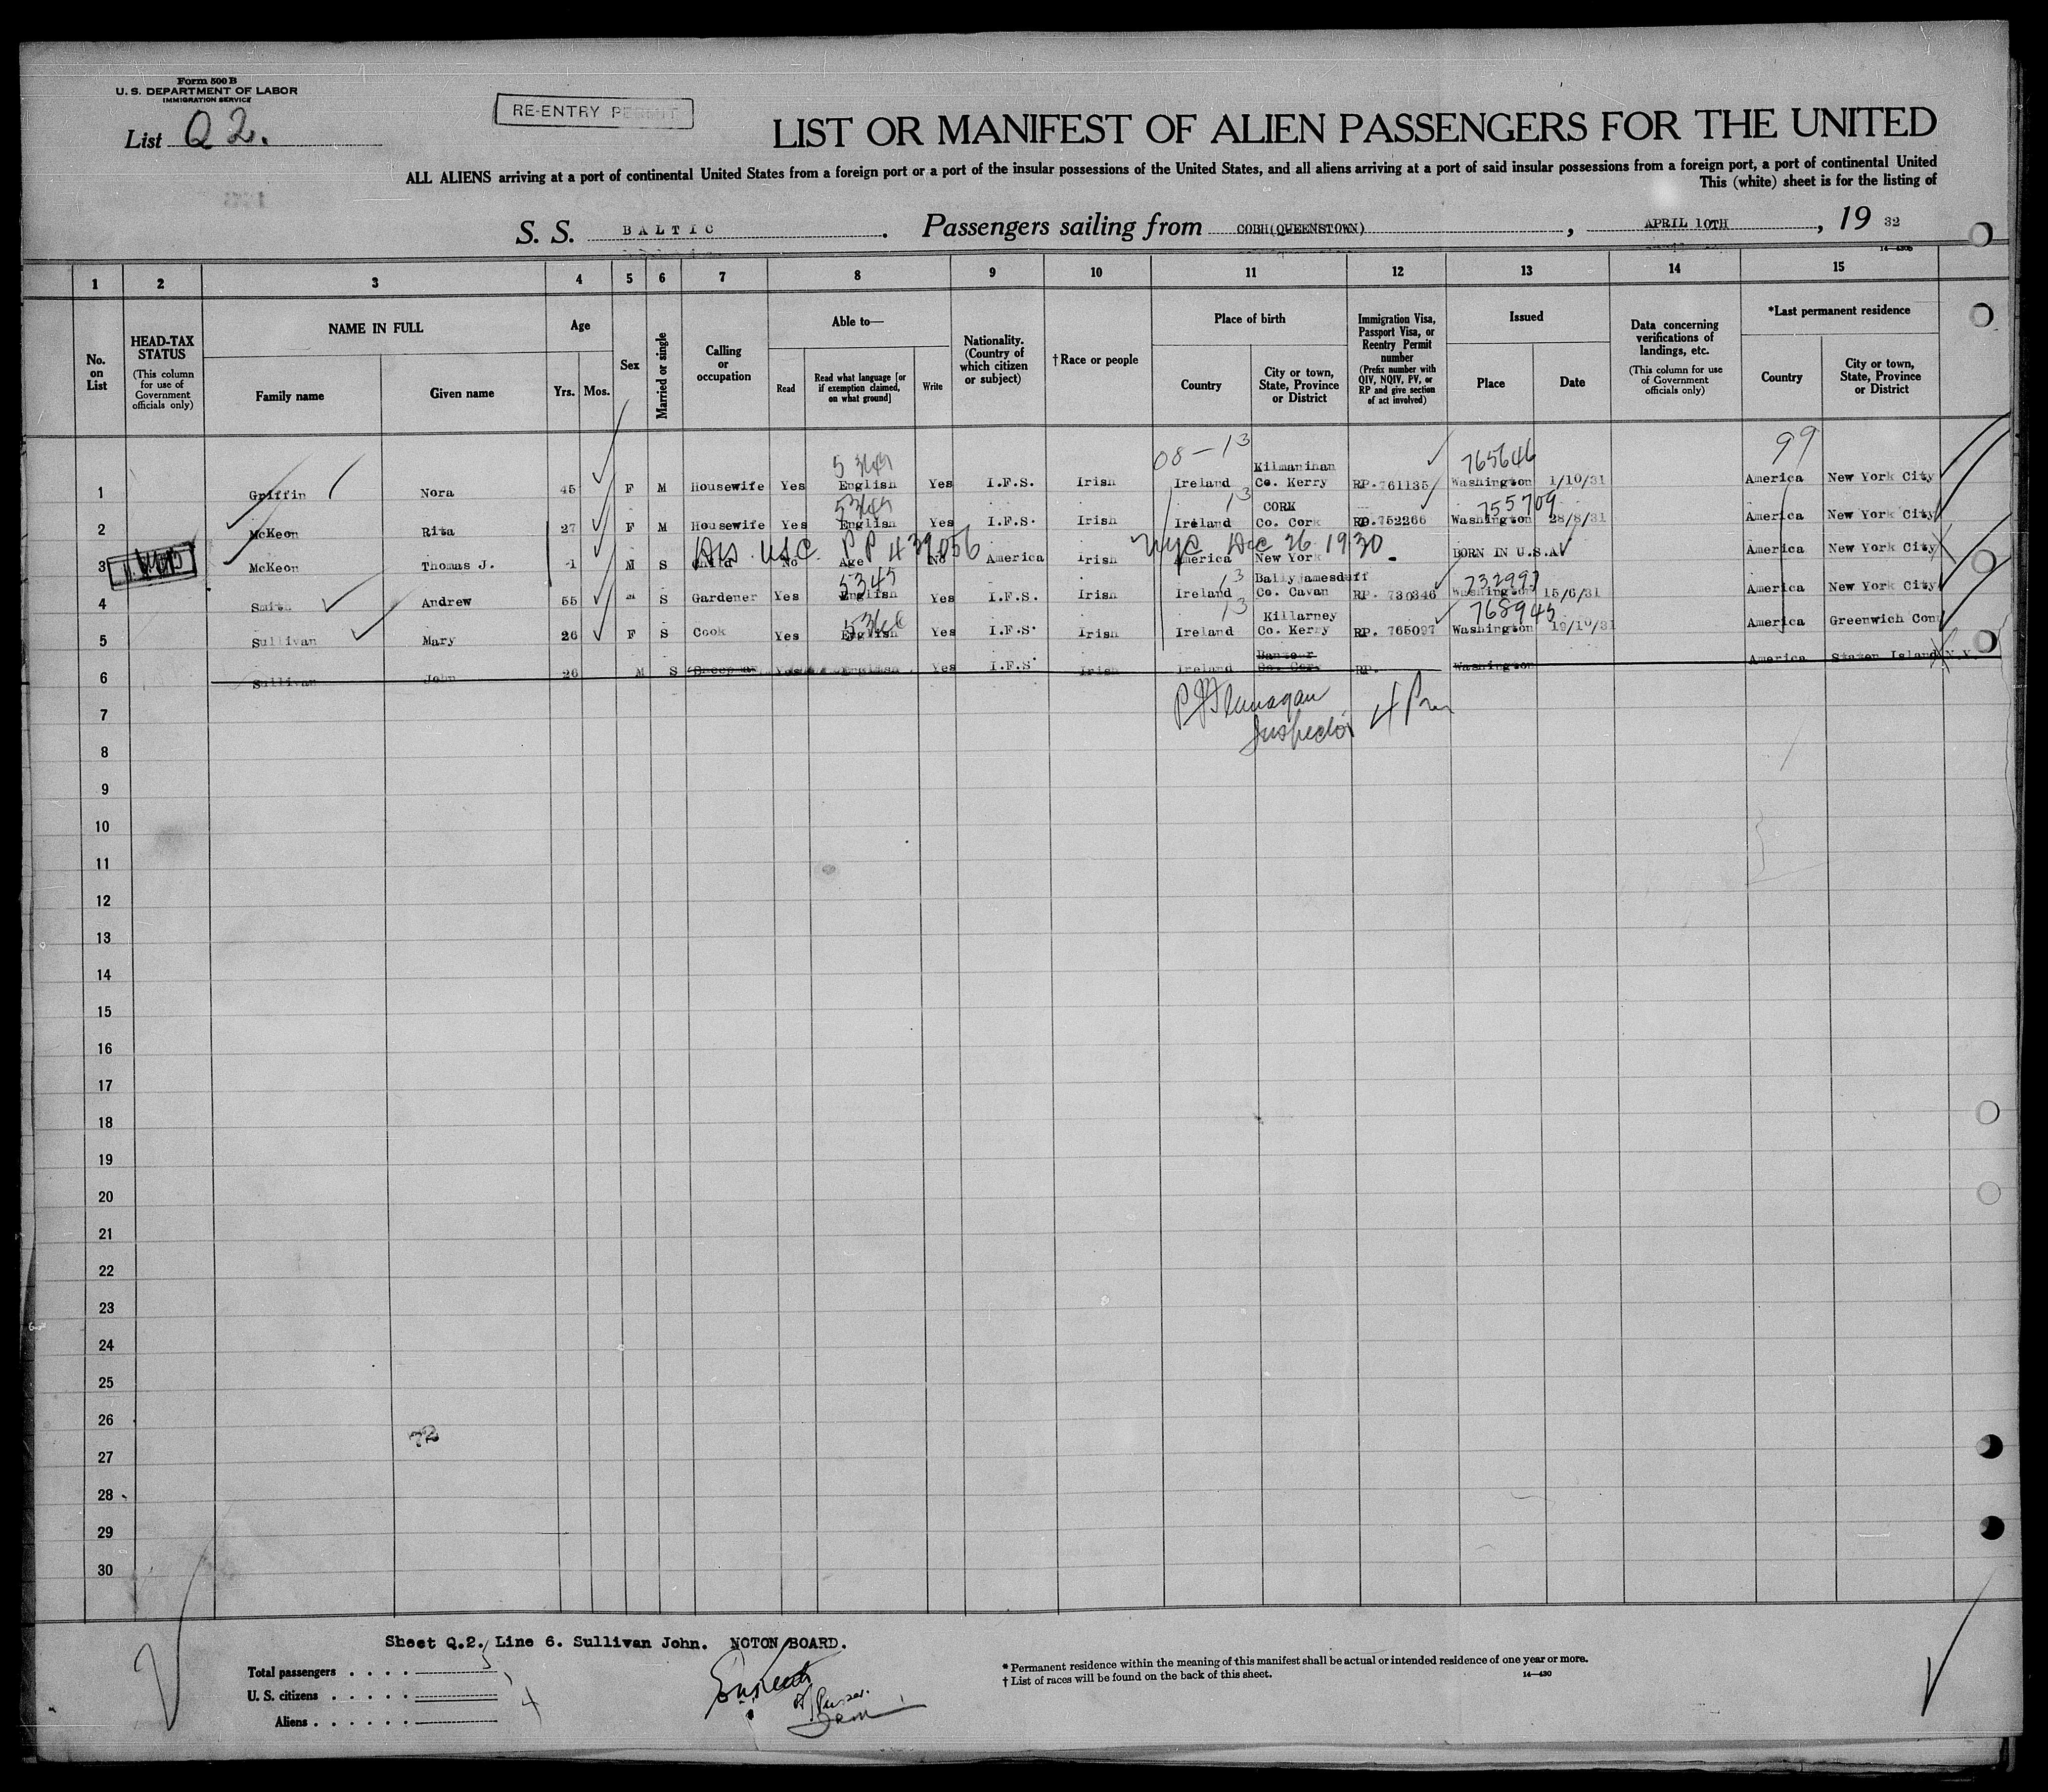 Form 500 B
U. S. DEPARTMENT OF LABOR
IMMIGRATION SERVICE
List Q 2.
RE-ENTRY PERMIT
LIST OR MANIFEST OF ALIEN PASSENGERS FOR THE UNITED
ALL ALIENS arriving at a port of continental United States from a foreign port or a port of the insular possessions of the United States, and all aliens arriving at a port of said insular possessions from a foreign port, a port of continental United
This (white) sheet is for the listing of
S. S. BALTIC. Passengers sailing from COBH(QUEENSTOWN), APRIL 10TH, 19 32
1 2 3 4 5 6 7 8 9 10 11 12 13 14 15
No. on List
HEAD-TAX STATUS
(This column for use of Government officials only)
NAME IN FULL
Family name
Given name
Age
Yrs. Mos.
Sex
Married or single
Calling or occupation
Able to—
Read
Read what language [or if exemption claimed, on what ground]
Write
Nationality. (Country of which citizen or subject)
†Race or people
Place of birth
Country
City or town, State, Province or District
Immigration Visa, Passport Visa, or Reentry Permit number
(Prefix number with QIV, NQIV, PV, or RP and give section of act involved)
Issued
Place
Date
Data concerning verifications of landings, etc.
(This column for use of Government officials only)
*Last permanent residence
Country
City or town, State, Province or District
08-13 765646 99
1 Griffin Nora 45 F M Housewife Yes English Yes I.F.S. Irish Ireland Kilmanihan Co. Kerry RP.761135 Washington 1/10/31 America New York City
13 755709
2 McKeon Rita 27 F M Housewife Yes English Yes I.F.S. Irish Ireland CORK Co. Cork RP.752266 Washington 28/8/31 America New York City
U.S.C. P P 439056 NYC Dec 26 1930
3 McKeon Thomas J. 1 M S Child No Age No America Irish America New York BORN IN U.S.A America New York City
5345 13 732997
4 Smith Andrew 55 M S Gardener Yes English Yes I.F.S. Irish Ireland Ballyjamesduff Co. Cavan RP. 730346 Washington 15/6/31 America New York City
13 768945
5 Sullivan Mary 26 F S Cook Yes English Yes I.F.S. Irish Ireland Killarney Co. Kerry RP. 765097 Washington 19/10/31 America Greenwich Conn
6 Sullivan John 26 M S Yes English Yes I.F.S. Irish Ireland Banteer Co. Cork RP. Washington America Staten Island N.Y.
7
Inspector
8
9
10
11
12
13
14
15
16
17
18
19
20
21
22
23
24
25
26
27
28
29
30
Sheet Q.2. Line 6. Sullivan John. NOTON BOARD.
Total passengers . . . . 5
U. S. citizens . . . . .
Aliens . . . . . . 4
* Permanent residence within the meaning of this manifest shall be actual or intended residence of one year or more.
† List of races will be found on the back of this sheet.
14—430